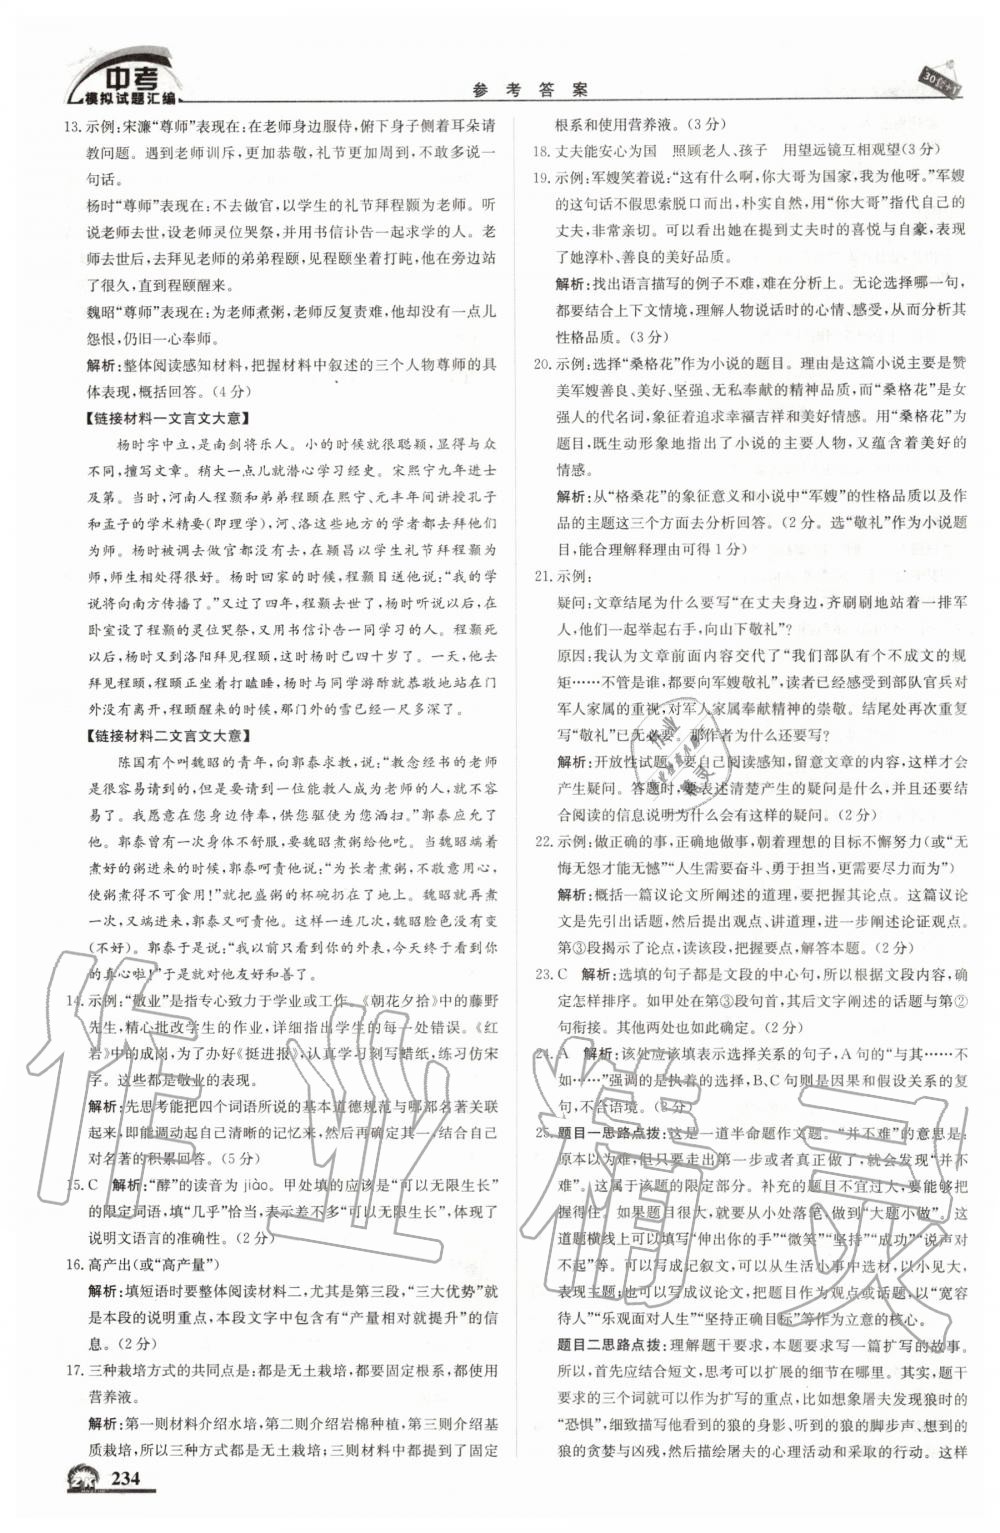 中考
模拟试题汇编
参考答案
30套+1
13. 示例:宋濂“尊师”表现在:在老师身边服侍,俯下身子侧着耳朵请
教问题。遇到老师训斥,更加恭敬,礼节更加周到,不敢多说一
句话。
杨时“尊师”表现在:不去做官,以学生的礼节拜程颢为老师。听
说老师去世,设老师灵位哭祭,并用书信讣告一起求学的人。老
师去世后,去拜见老师的弟弟程颐,碰到老师坐着打盹,他在旁边站
了很久,直到程颐醒来。
魏昭“尊师”表现在:为老师煮粥,老师反复责难,他却没有一点儿
怨恨,仍旧一心奉师。
解析:整体阅读感知材料,把握材料中叙述的三个人物尊师的具
体表现,概括回答。(4分)
【链接材料一文言文大意】
杨时字中立,是南剑将乐人。小的时候就很聪颖,显得与众
不同,擅写文章。稍大一点儿就潜心学习经史。宋熙宁九年进士
及第。当时,河南人程颢和弟弟程颐在熙宁、元丰年间讲授孔子
和孟子的学术精要(即理学),河、洛这些地方的学者都去拜他们
为师。杨时被调去做官都没有去,在颍昌以学生礼节拜程颢为
师,师生相处得很好。杨时回家的时候,程颢目送他说:“我的学
说将向南方传播了。”又过了四年,程颢去世了,杨时听说以后,在
卧室设了程颢的灵位哭祭,又用书信讣告一同学习的人。程颢死
以后,杨时又到洛阳拜见程颐,这时杨时已四十岁了。一天,他去
拜见程颐的时候,程颐正坐着打瞌睡,杨时与同学游酢就恭敬地站在门
外没有离开,程颐醒来的时候,那门外的雪已经一尺多深了。
【链接材料二文言文大意】
陈国有个叫魏昭的青年,向郭泰求教,说:“教念经书的老师
是很容易请到的,但是要请到一位能教人成为老师的人,就很难
了。我愿意在您身边侍奉,供您驱使为您洒扫。”郭泰应允了
他。郭泰曾经有一次身体不舒服,要魏昭煮粥给他吃。当魏昭端着
煮好的粥进来的时候,郭泰呵责他说:“为长者煮粥,不存敬意,
使粥苦得不可食用!”就把盛粥的杯碗扔在了地上。魏昭就再煮
一次,又端进来,郭泰又呵责他。这样一连几次,魏昭脸色没有变
(不好)。郭泰于是说:“我以前只看到你的外表,今天终于看到你
的真心啦!”于是就对他友好和善了。
14. 示例:“敬业”是指专心致力于学业或工作。《朝花夕拾》中的藤野
先生,精心批改学生的作业,详细指出每一处错误。《红
岩》中的成岗,为了办好《挺进报》,认真学习刻写蜡纸,练习仿宋
字。这些都是敬业的表现。
解析:先思考能把四个词语所说的基本道德规范与哪部名著关联
起来,即能调动起自己清晰的记忆来,然后作答。这一题侧重于
对名著的积累回答。(5分)
15. C 解析:“酵”的读音为jiào。甲处填的应该是“可以无限生长”
的限定词语,填“几乎”恰当,表示差不多“可以无限生长”,体现了
说明文语言的准确性。(2分)
16. 高产出(或“高产量”)
解析:填短语时要整体阅读材料二,尤其是第三段,“三大优势”就
是本段的说明重点,本段文字中包含有“产量相对就提升”的信
息。(2分)
17. 三种栽培方式的共同点是:都是无土栽培,都要固定根系,都使用
营养液。
解析:第一则材料介绍水培,第二则介绍岩棉种植,第三则介绍基
质栽培,所以三种方式都是无土栽培;三则材料中都提到了固定
根系和使用营养液。(3分)
18. 丈夫能安心为国 照顾老人、孩子 用望远镜互相观望(3分)
19. 示例:军嫂笑着说:“这有什么啊,你大哥为国家,我为他呀。”军嫂
的这句话不假思索脱口而出,朴实自然,用“你大哥”指代自己的
丈夫,非常亲切。可以看出她在提到丈夫时的喜悦与自豪,表现
了她淳朴、善良的美好品质。
解析:找出语言描写的例子不难,难在分析上。无论选择哪一句,
都要结合上下文情境,理解人物说话时的心情、感受,从而分析其
性格品质。(3分)
20. 示例:选择“桑格花”作为小说的题目。理由是这篇小说主要是赞
美军嫂善良、美好、坚强、无私奉献的精神品质,而“桑格花”是女
强人的代名词,象征着追求幸福吉祥和美好情感。用“桑格花”为
题目,既生动形象地指出了小说的主要人物,又蕴含着美好的
情感。
解析:从“格桑花”的象征意义和小说中“军嫂”的性格品质以及作
品的主题这三个方面去分析回答。(2分。选“敬礼”作为小说题
目,能合理解释理由可得1分)
21. 示例:
疑问:文章结尾为什么要写“在丈夫身边,齐刷刷地站着一排军
人,他们一起举起右手,向山下敬礼”?
原因:我认为文章前面内容交代了“我们部队有个不成文的规
矩……不管是谁,都要向军嫂敬礼”,读者已经感受到部队官兵对
军人家属的重视,对军人家属奉献精神的崇敬。结尾处再次重复
写“敬礼”已无必要。那作者为什么还要写?
解析:开放性试题,要自己阅读感知,留意文章的内容,这样才会
产生疑问。答题时,要表述清楚产生的疑问是什么,并且还要结
合阅读的信息说明为什么会有这样的疑问。(2分)
22. 示例:做正确的事,正确地做事,朝着理想的目标不懈努力(或“无
悔无怨才能无憾”“人生需要奋斗、勇于担当,更需要尽力而为”)
解析:概括一篇议论文所阐述的道理,要把握其论点。这篇议论
文是先引出话题,然后提出观点、讲道理,进一步阐述论证观点。
第③段揭示了论点,读该段,把握要点,解答本题。(2分)
23. C 解析:选填的句子都是文段的中心句,所以根据文段内容,确
定怎样排序。如甲处在第③段句首,其后文字阐述的话题与第②
句衔接。其他两处也如此确定。(2分)
24. A 解析:该处应该填表示选择关系的句子,A句的“与其……不
如……”强调的是执着的选择,B、C句则是因果和假设关系的复
句,不合语境。(2分)
25. 题目一思路点拨:这是一道半命题作文题。“并不难”的意思是:
原本以为难,但只要走出第一步或者真正做了,就会发现“并不
难”。这属于该题的限定部分。补充的题目不宜过大,要能够把
握得住。如果题目很大,就要善于从小处落笔,做到“大题小做”。这
道题横线上可以填写“伸出你的手”“微笑”“坚持”“成功”“说声对
不起”等。可以写成记叙文,可以从生活小事中选材,以小见大地
表现主题;也可以写成议论文,把题目作为论点或论题,以“宽容
待人”“乐观面对人生”“坚持正确目标”等作为立意的核心。
题目二思路点拨:理解题干要求,本题要求写一篇扩写的故事。
所以,首先应结合短文,思考可以扩展的细节在哪里。其次,题干
要求的三个词可以作为扩写的重点,比如想象屠夫发现狼时的
“恐惧”,细致描写他看到的狼的身影、听到的狼的脚步声、想到的
狼的贪婪与凶残,然后描绘屠夫的心理活动和采取的行动。这样
234
作业精灵